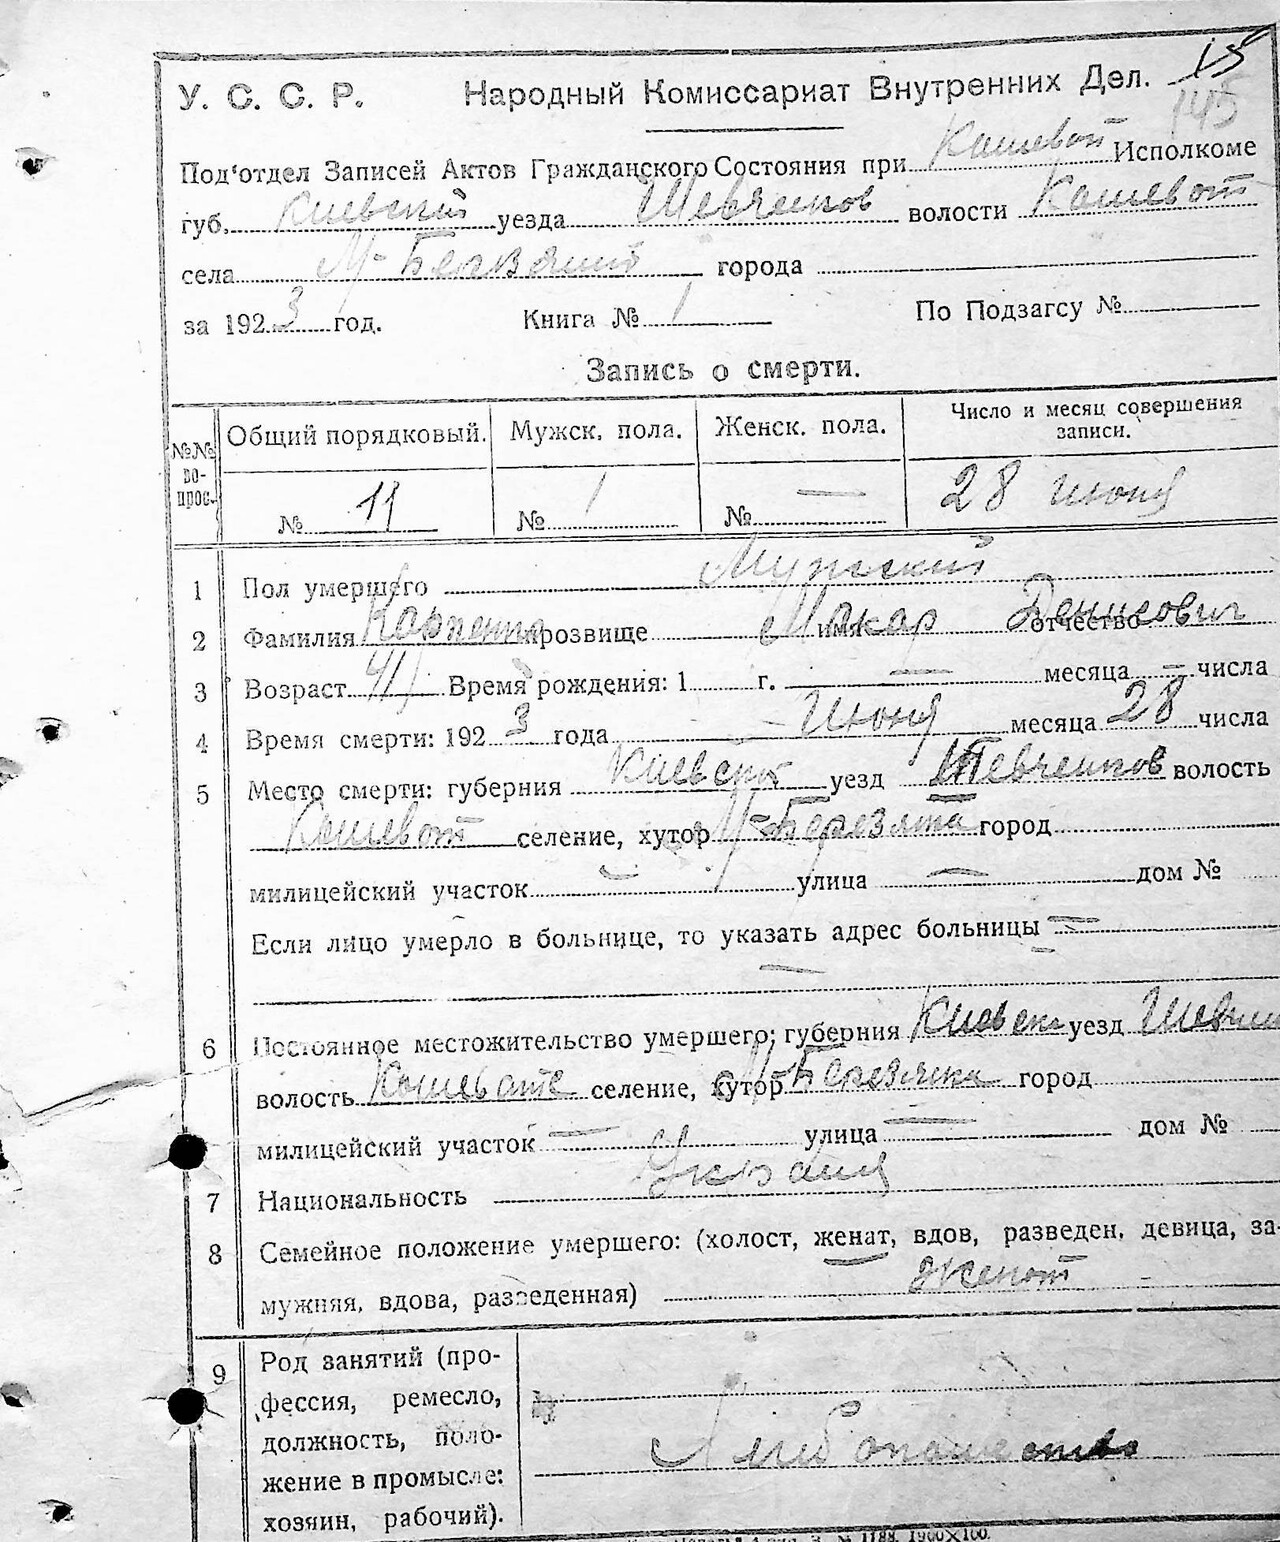 15
145
У. С. С. Р. Народный Комиссариат Внутренних Дел.
Под'отдел Записей Актов Гражданского Состояния при Кошевот Исполкоме
губ. Киевский уезда Шевченков волости Кошевот
села М-Березянка города
за 1923 год. Книга № 1 По Подзагсу №
Запись о смерти.
№№ вопрос. Общий порядковый. Мужск. пола. Женск. пола. Число и месяц совершения записи.
№ 11 № 1 № — 28 июня
1 Пол умершего Мужский
2 Фамилия Карпенко прозвище имя Макар отчество Денисович
3 Возраст 41 Время рождения: 1 г. — месяца — числа
4 Время смерти: 1923 года Июня месяца 28 числа
5 Место смерти: губерния Киевской уезд Шевченков волость
Кошевот селение, хутор М-Березянка город
милицейский участок — улица — дом №
Если лицо умерло в больнице, то указать адрес больницы —
—
6 Постоянное местожительство умершего: губерния Киевск уезд Шевчен
волость Кошевате селение, хутор М Березянка город
милицейский участок — улица — дом №
7 Национальность Украин
8 Семейное положение умершего: (холост, женат, вдов, разведен, девица, за-
мужняя, вдова, разведенная) Женат
9 Род занятий (про-
фессия, ремесло,
должность, поло-
жение в промысле:
хозяин, рабочий).
Хлебопашество
№ 1188. 1900×100.